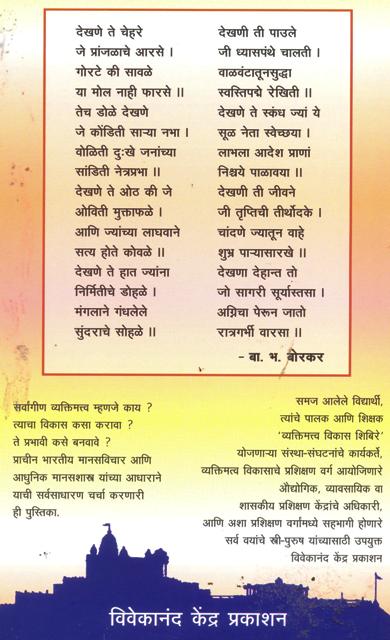 देखणे ते चेहरे
जे प्रांजळाचे आरसे ।
गोरटे की सावळे
या मोल नाही फारसे ॥
तेच डोळे देखणे
जे कोंडिती साऱ्या नभा ।
वोळिती दुःखे जनांच्या
सांडिती नेत्रप्रभा ॥
देखणे ते ओठ की जे
ओविती मुक्ताफळे ।
आणि ज्यांच्या लाघवाने
सत्य होते कोवळे ॥
देखणे ते हात ज्यांना
निर्मितीचे डोहळे ।
मंगलाने गंधलेले
सुंदराचे सोहळे ॥
देखणी ती पाउले
जी ध्यासपंथे चालती ।
वाळवंटातूनसुद्धा
स्वस्तिपद्मे रेखिती ॥
देखणे ते स्कंध ज्यां ये
सूळ नेता स्वेच्छया ।
लाभला आदेश प्राणां
निश्चये पाळावया ॥
देखणी ती जीवने
जी तृप्तिची तीर्थोदके ।
चांदणे ज्यातून वाहे
शुभ्र पाऱ्यासारखे ॥
देखणा देहान्त तो
जो सागरी सूर्यास्तसा ।
अग्निचा पेरून जातो
रात्रगर्भी वारसा ॥
- बा. भ. बोरकर
सर्वांगीण व्यक्तिमत्त्व म्हणजे काय ?
त्याचा विकास कसा करावा ?
ते प्रभावी कसे बनवावे ?
प्राचीन भारतीय मानसविचार आणि
आधुनिक मानसशास्त्र यांच्या आधाराने
याची सर्वसाधारण चर्चा करणारी
ही पुस्तिका.
समज आलेले विद्यार्थी,
त्यांचे पालक आणि शिक्षक
'व्यक्तिमत्त्व विकास शिबिरे'
योजणाऱ्या संस्था-संघटनांचे कार्यकर्ते,
व्यक्तिमत्त्व विकासाचे प्रशिक्षण वर्ग आयोजिणारे
औद्योगिक, व्यावसायिक वा
शासकीय प्रशिक्षण केंद्रांचे अधिकारी,
आणि अशा प्रशिक्षण वर्गामध्ये सहभागी होणारे
सर्व वयांचे स्त्री-पुरुष यांच्यासाठी उपयुक्त
विवेकानंद केंद्र प्रकाशन
विवेकानंद केंद्र प्रकाशन